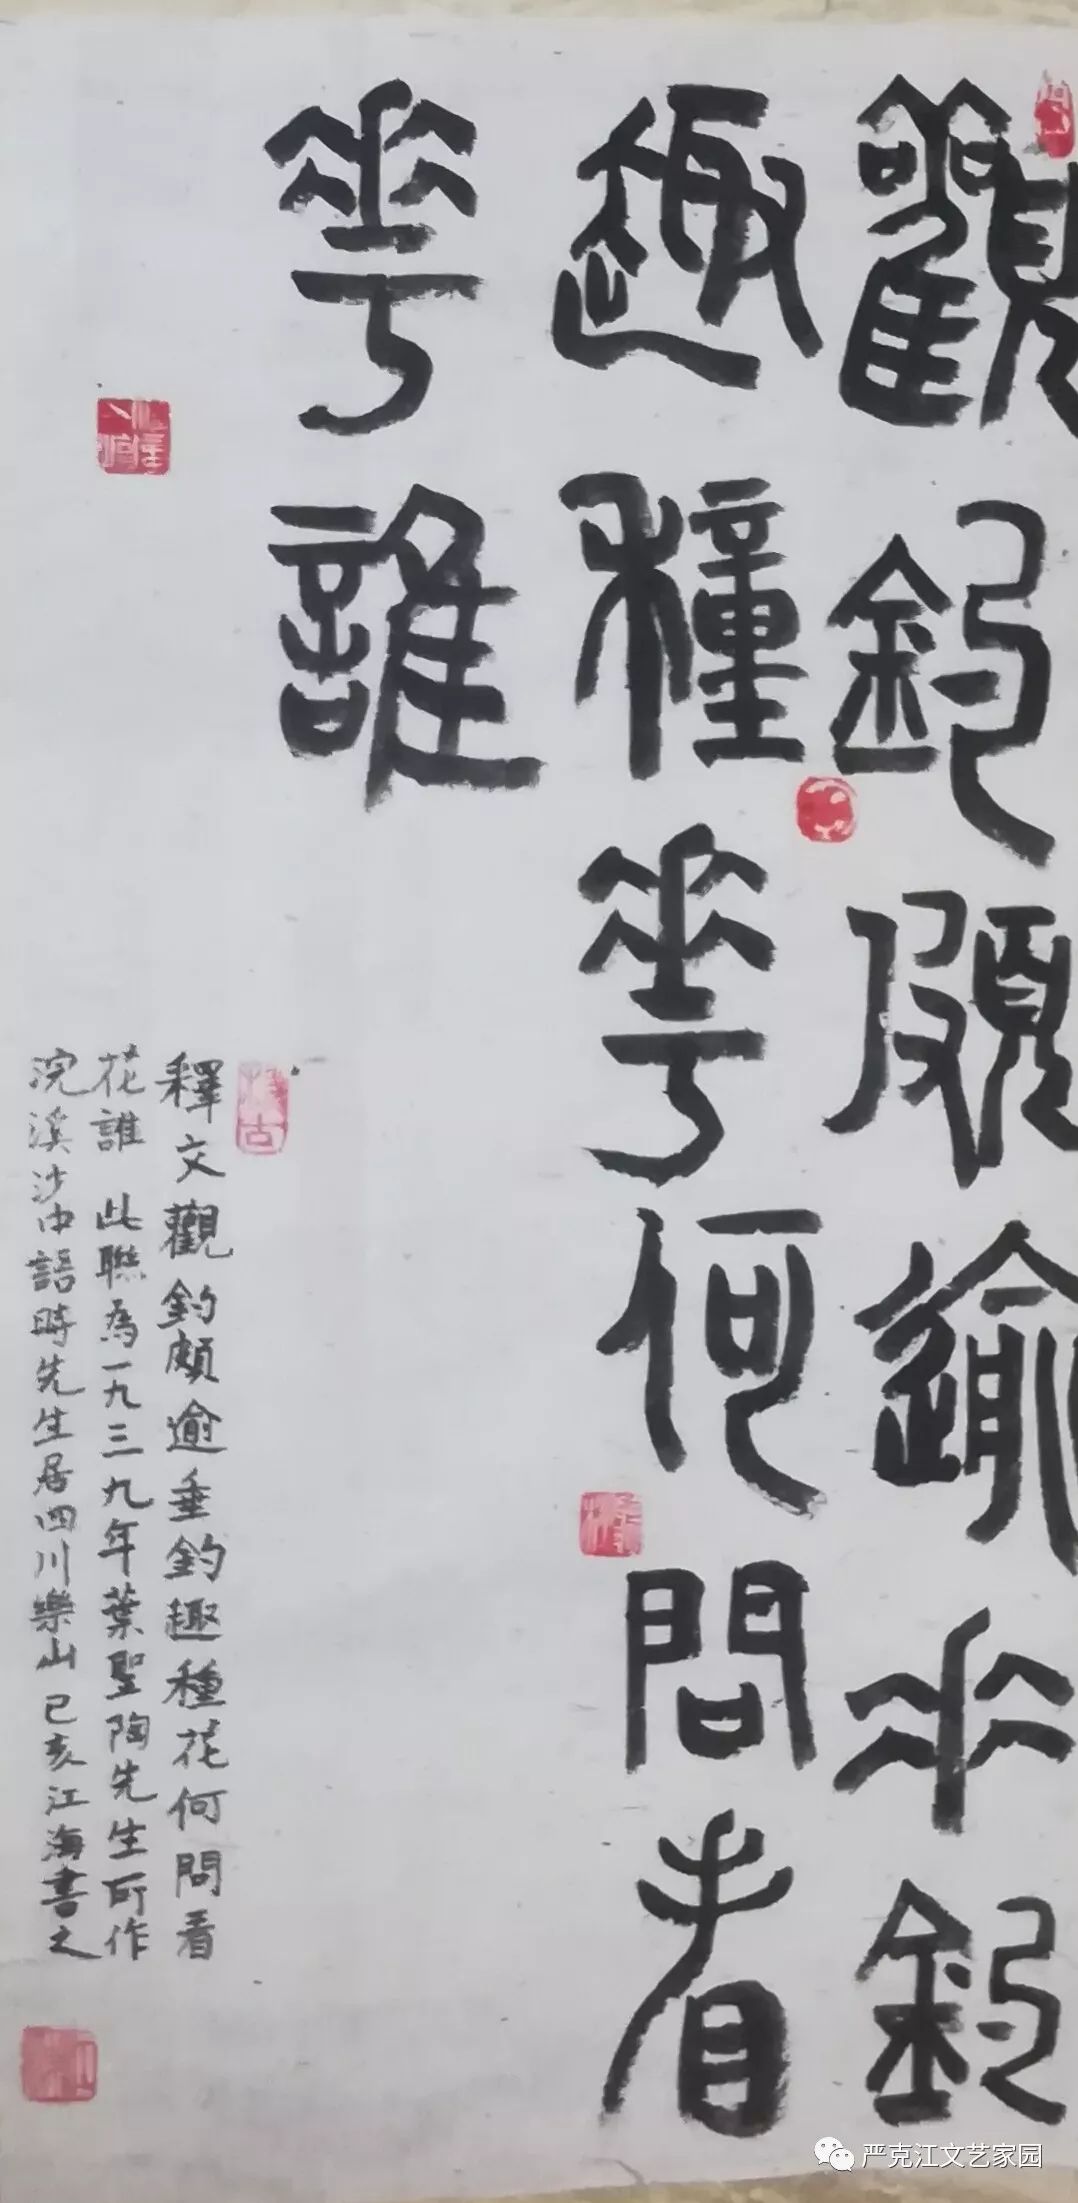 觀釣頗逾垂釣
趣種花何問看
花誰
釋文觀釣頗逾垂釣趣種花何問看
花誰 此聯為一九三九年葉聖陶先生所作
浣溪沙中語時先生居四川樂山己亥江海書之
严克江文艺家园